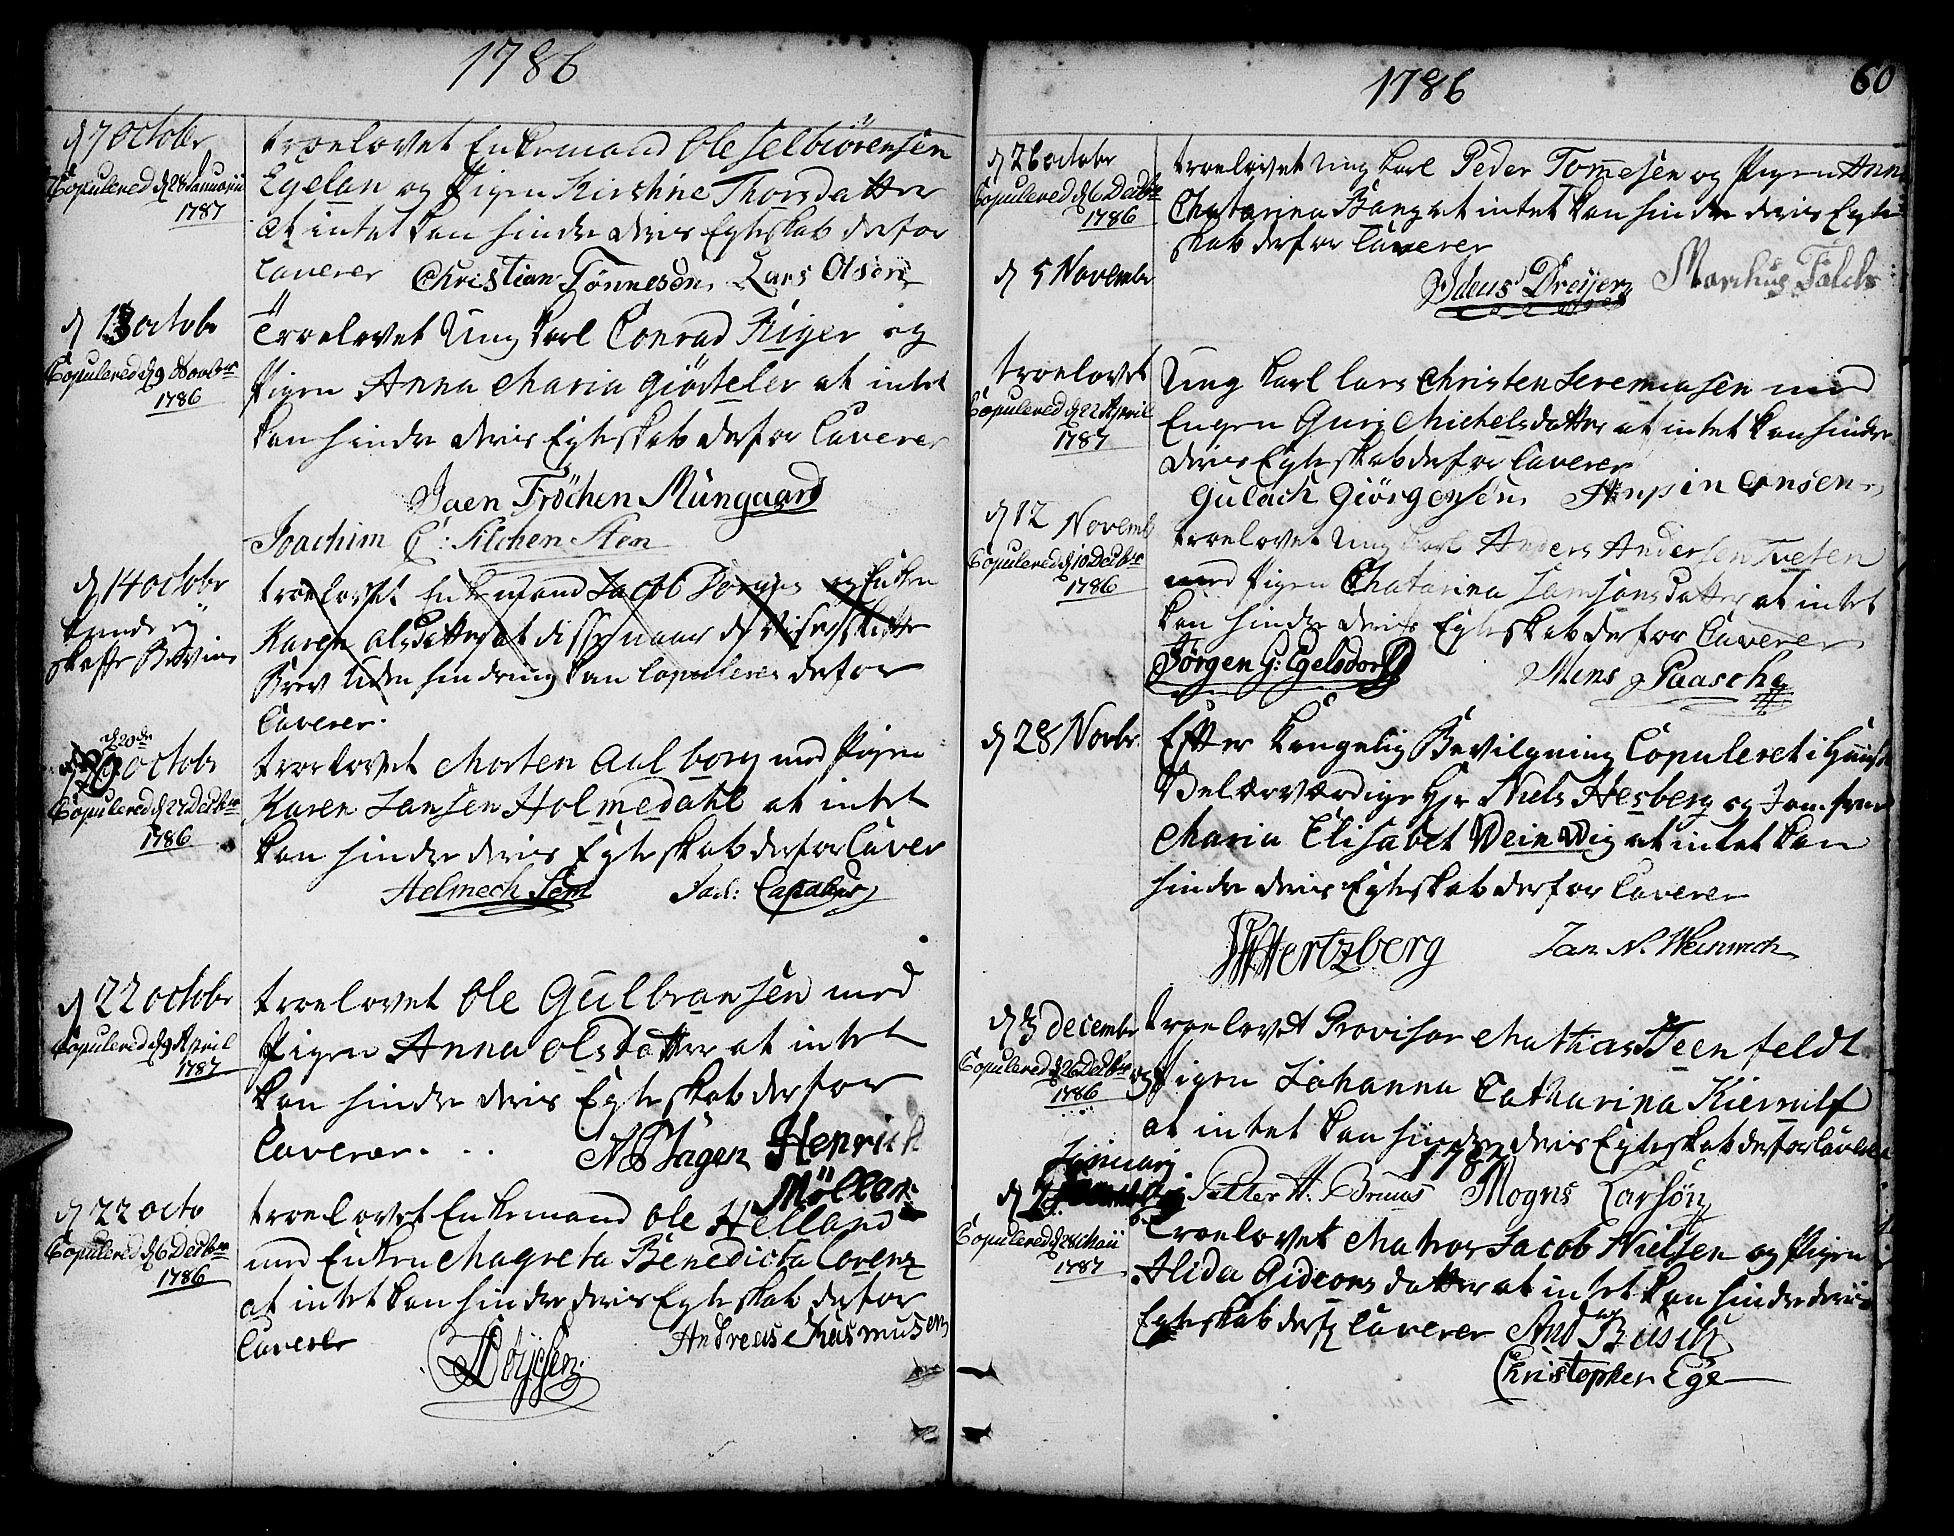 1786
d 7 October
Copulered d 28 Januarii
1787
troelovet Enkemand Ole Selbiörensen
Egelan og Pigen Kirstine Thorsdatter
at intet kan hindre deris Egteskab derfor
Caverer Christian Tönnesen Lars Olsen
d 13 octobr
Copulered d 9 Novbr
1786
Troelovet Ung karl Conrad Kiger og
Pigen Anna Maria Giörteler at intet
kan hindre deris Egteskab derfor Caverer
Jaen Tröchen Mungaard
Joachim
d 14 octobr
kunde ey
skaffe Beviis
troelovet Enkemand Jacob og Enken
Karen olsdatter at disse naar de
Brev uden hindring kan Copuleres derfor
Caverer.
d 20de
octobr
Copulered d 27 Decbr
1786
troelovet Morten Aalborg med Pigen
Karen Jansen Holmedahl at intet
kan hindre deris Egteskab derfor Caver
Helmech Sem Jac:
d 22 octobr
Copulered d 9 April
1787
troelovet Ole Gulbransen med
Pigen Anna olsdatter at intet
kan hindre deris Egteskab derfor
Caverer. . . Henrich
Möller
d 22 octo
Copulered d 6 Decbr
1786
troelovet Enkemand Ole Helland
med Enken Magreta Benedicta Lorenz
at intet kan hindre deris Egteskab derfor
Caverer Andreas Rasmusen
1786
60
d 26 octobr
Copulered d 6 Decbr
1786
troelovet Ung karl Peder Tommesen og Pigen Anna
Chatarina Bang at intet kan hindre deris Egte
skab derfor Caverer
Dreyer Marchus Falch
d 5 Novembr
troelovet
Copulered d 22 April
1787
Ung karl lars Christen Jeremiasen med
Engen Guri Michelsdatter at intet kan hindre
deris Egteskab derfor Caverer
Gulach Giörgensen
d 12 Novemb
Copulered d 10 Decbr
1786
troelovet Ung karl Anders Andersen Tvesen
med Pigen Chatarina Samsonsdatter at intet
kan hindre deris Egteskab derfor Caverer
Jörgen G: Egelsdorff Mens Paasche
d 28 Novbr.
Efter kongelig Bevilgning Copuleret i Huuset
Velærværdige Hr Niels Hesberg og Jomfrue
Maria Elisabet Weinwig at intet kan
hindre deris Egteskab derfor Caverer
Hertzberg Jan N. Weinwich
d 3 December
Copulered d 26 Decbr
1786
troelovet Provisor Mathias Steenfeldt
og Pigen Johanna Catharina Kierulf
at intet kan hindre deris Egteskab derfor Caverer
1787
Januarj
Petter H. Bruus Mogns Larsön
d 7
Copulered d 28 Maii
1787
Troelovet Matros Jacob Nielsen og Pigen
Alida Gideons datter at intet kan hindre deris
Egteskab derfor Caverer And Busch
Christopher Ege